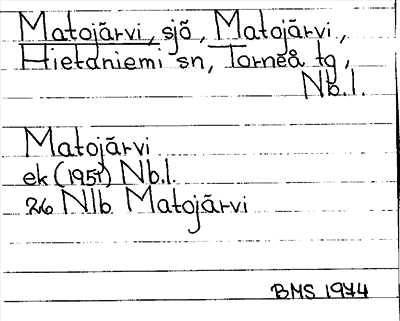 Matojärvi, sjö, Matojärvi,
Hietaniemi sn, Torneå tg,
Nb.l.
Matojärvi
ek (1951) Nb.l.
26 Nlb Matojärvi
BMS 1974